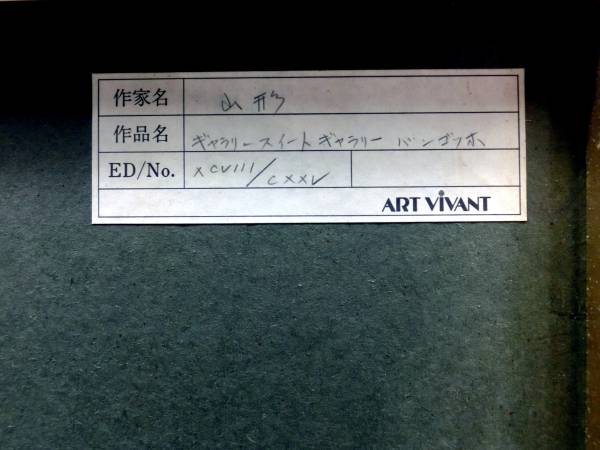 作家名 山形
作品名 ギャラリースイート ギャラリー バンゴッホ
ED/No. XCVIII/CXXV
ART ViVANT